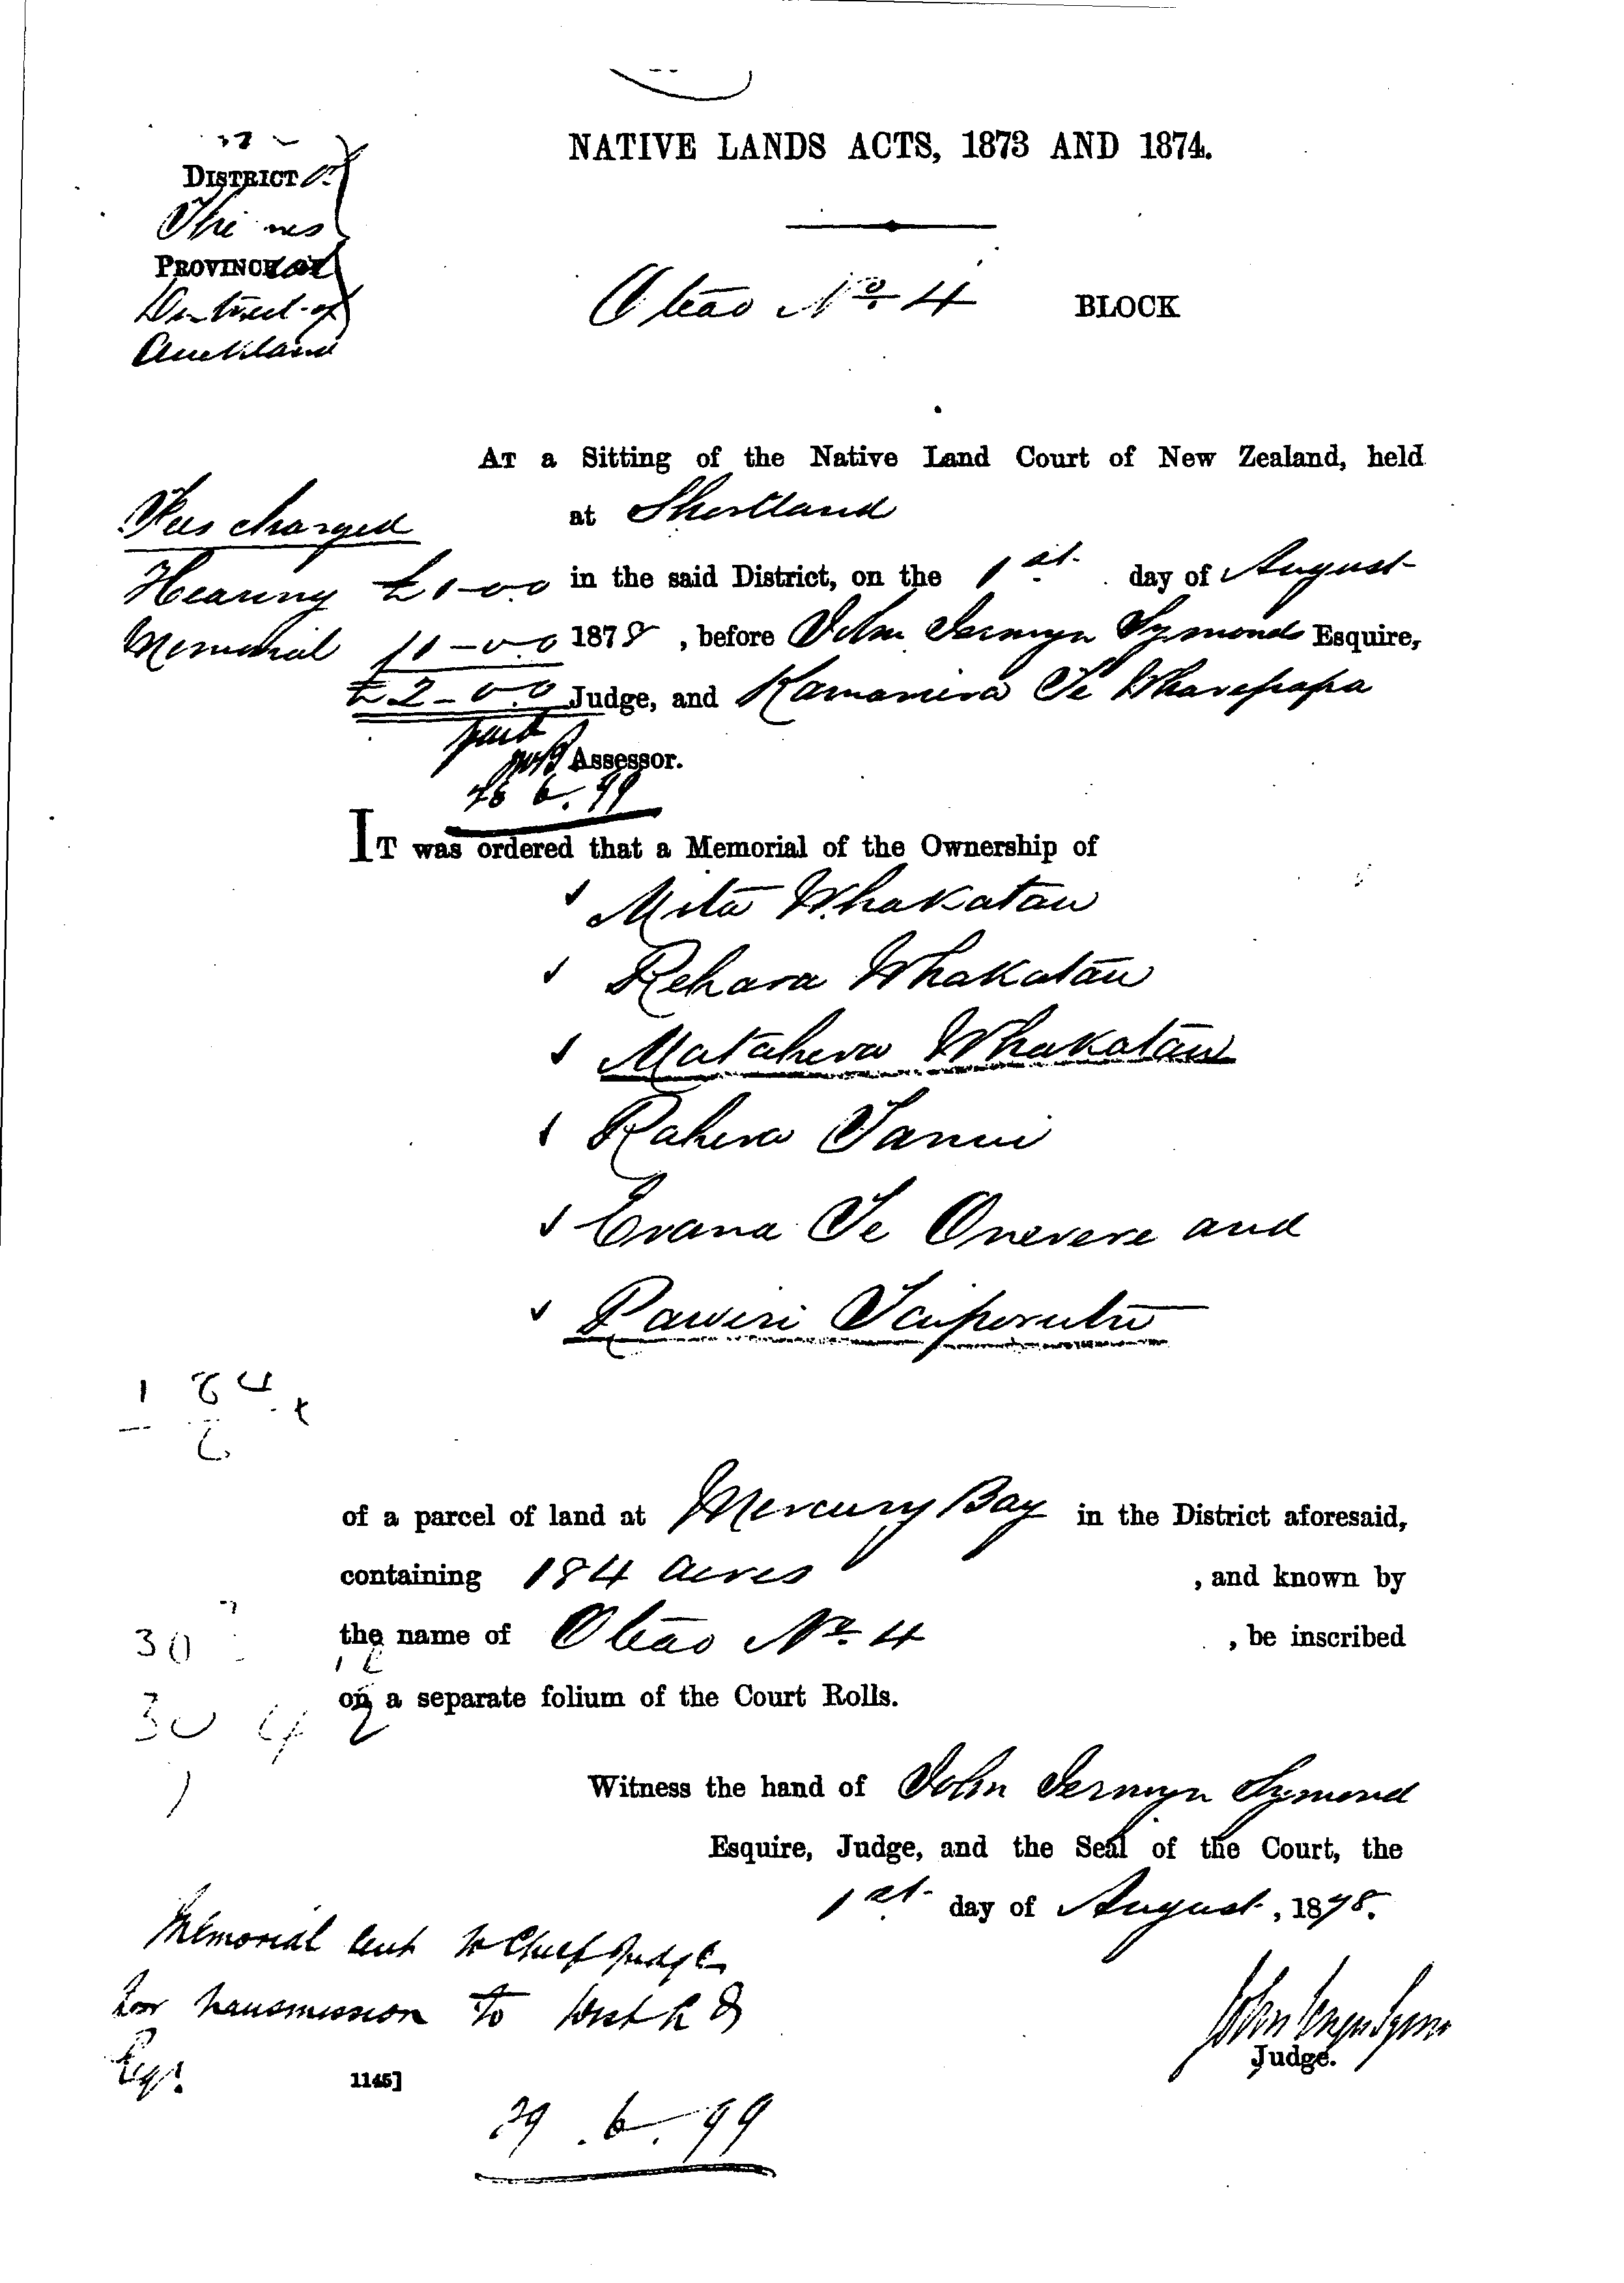 NATIVE LANDS ACTS, 1873 AND 1874.
DISTRICT of
PROVINCIAL
District of
Auckland
Oteao No. 4 BLOCK
AT a Sitting of the Native Land Court of New Zealand, held
at Shortland
Fees charged
in the said District, on the 1st day of August
Hearing £1-0.0
1878, before John Jermyn Symonds Esquire,
Memorial 11-0.0
£2-0.0
Judge, and Kamariera Te Wharepapa
paid
Assessor.
28 6. 99
IT was ordered that a Memorial of the Ownership of
Mita Whakatau
Rehara Whakatau
Matahera Whakatau
Rahera Tanui
Erana Te Onerere and
Paweri Taiporutu
184
6
of a parcel of land at Mercury Bay in the District aforesaid,
containing 184 acres, and known by
the name of Oteao No. 4, be inscribed
30
on a separate folium of the Court Rolls.
30 4
Witness the hand of John Jermyn Symond
Esquire, Judge, and the Seal of the Court, the
1st day of August, 1878.
Memorial sent to Chief Judge
for transmission to Dist L &
Regr.
Judge.
1145]
29. 6. 99